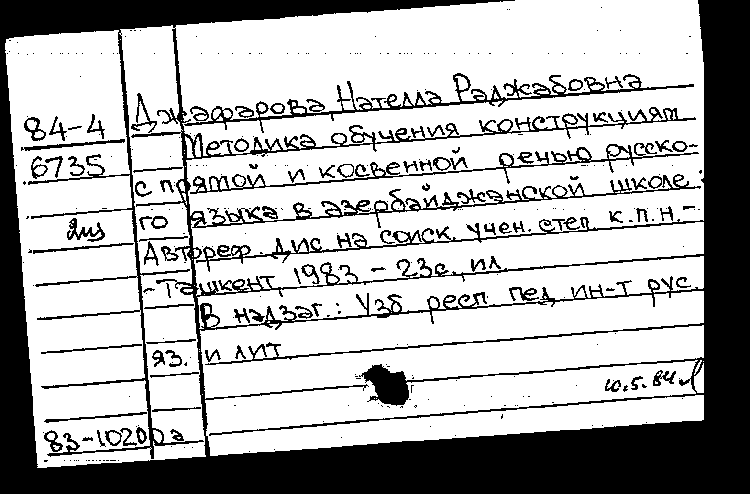 84-4
6735
2из
Джафарова, Нателла Раджабовна
Методика обучения конструкциям
с прямой и косвенной речью русско-
го языка в азербайджанской школе:
Автореф. дис. на соиск. учен. степ. к.п.н.-
-Ташкент, 1983.-23с., ил.
В надзаг.: Узб. респ. пед. ин-т рус.
яз. и лит.
10.5.84
83-10200а